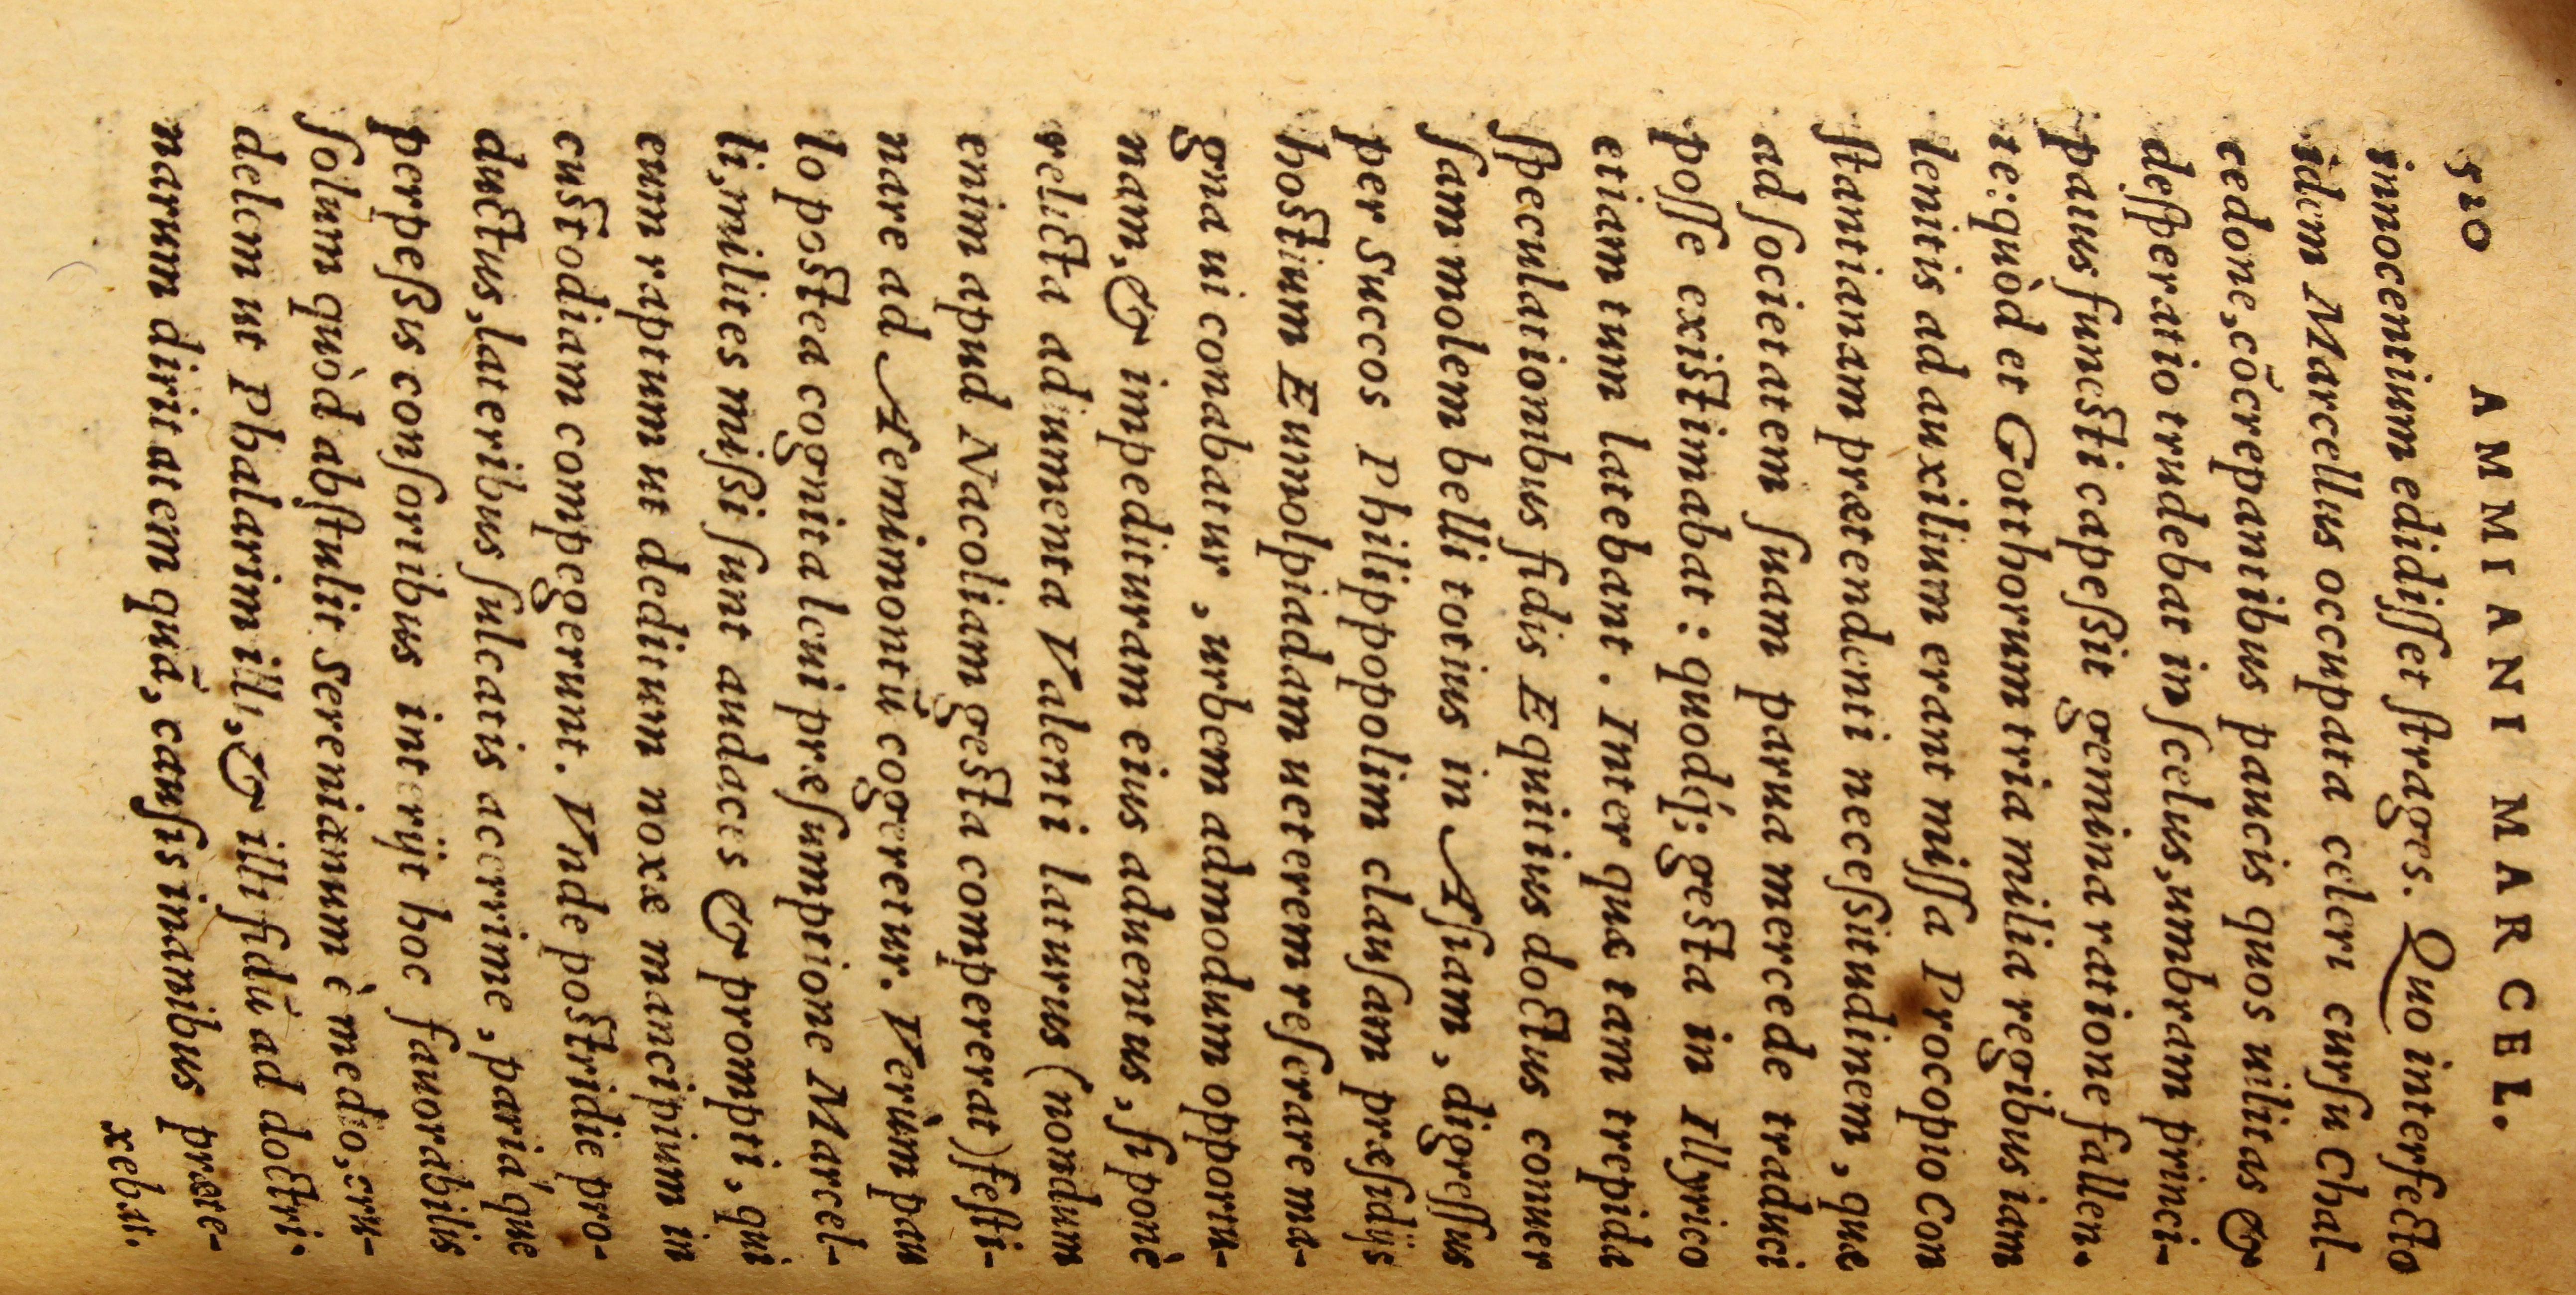 510 AMMIANI MARCEL.
innocentium edidiſſet ſtrages. Quo interfecto
idem Marcellus occupata celeri curſu Chal-
cedone, cōcrepantibus paucis quos uilitas &
deſperatio trudebat in ſcelus, umbram princi-
patus funesti capeßit gemina ratione fallen.
te: quòd et Gotthorum tria milia regibus iam
lenitis ad auxilium erant miſſa Procopio Con
ſtantianam prætendenti neceßitudinem, quæ
ad ſocietatem ſuam parua mercede traduci
poſſe existimabat: quodq́; gesta in Illyrico
etiam tum latebant. Inter quæ tam trepida
ſpeculationibus fidis Equitius doctus conuer
ſam molem belli totius in Aſiam, digreſſus
per Succos Philippopolim clauſam præſidijs
hostium Eumolpiadam ueterem reſerare ma-
gna ui conabatur, urbem admodum opportu-
nam, & impedituram eius aduentus, ſi ponè
relicta adiumenta Valenti laturus (nondum
enim apud Nacoliam gesta compererat) feſti-
nare ad Aemimontū cogeretur. Verùm pau
lo postea cognita leui præſumptione Marcel-
li, milites mißi ſunt audaces & prompti, qui
eum raptum ut deditum noxæ mancipium in
custodiam compegerunt. Vnde postridie pro-
ductus, lateribus ſulcatis acerrimè, pariáque
perpeßus conſoribus interijt hoc fauorabilis
ſolum quòd abſtulit Serenianum è medio, cru-
delem ut Phalarim illi, & illi fidū ad doctri-
narum diritatem quā, cauſis inanibus præte-
xebat.